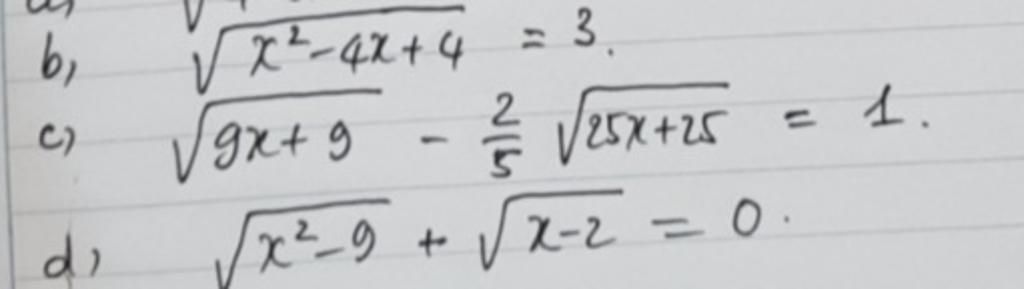 b, √(x²-4x+4) = 3.
c) √(9x+9) - 2/5 √(25x+25) = 1.
d) √(x²-9) + √(x-2) = 0.